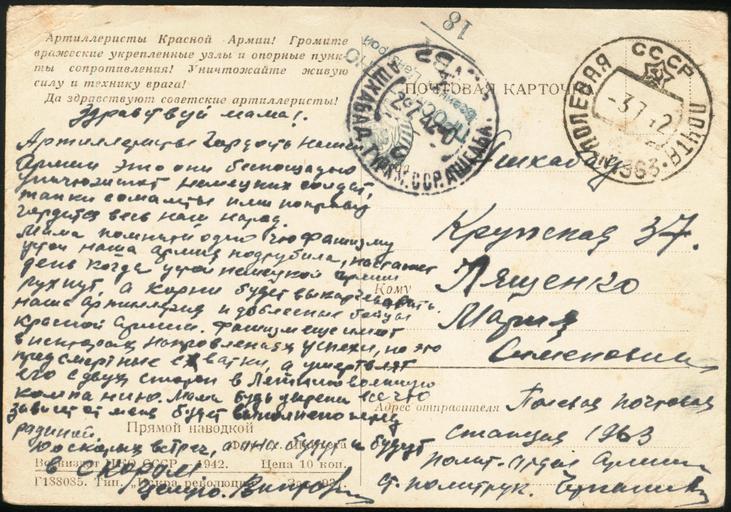 Артиллеристы Красной Армии! Громите
вражеские укрепленные узлы и опорные пунк-
ты сопротивления! Уничтожайте живую
силу и технику врага!
Да здравствуют советские артиллеристы!
18
ПОЧТОВАЯ КАРТОЧ
СССР
ПОЛЕВАЯ ПОЧТА
-3.7.42
№1963
АШХАБАД, ТУРКМ. ССР. АШГАБАД
Здравствуй мама!
Артиллеристы гордость нашей
Армии это они беспощадно
уничтожают немецких солдат,
танки самолеты ими по праву
гордится весь наш народ.
Мама помни одно что фашизму
наша армия подрубила, настанет
день когда немецкой армии
рухнут, а корни будет выкорчевывать
наша артиллерия и доблестные бойцы
красной Армии. Фашизм еще имеет
в некоторых направлениях успехи, но это
предсмертные схватки, а умертвлят
его с двух сторон в летнюю военную
компанию. Мама будь уверена все что
зависит от меня будет выполнено перед
родиной.
До скорых встреч, а они будут и будут
в скором
Целую. Виктор
Ашхабад
Крупская 37.
Кому
Лященко
Мария
Семеновна
Адрес отправителя
Полевая почтовая
станция 1963
полит-отдел армии
ст. политрук.
Прямой наводкой
Воениздат НКО СССР 1942. Цена 10 коп.
Г188085. Тип. „Искра революции“ Зак.